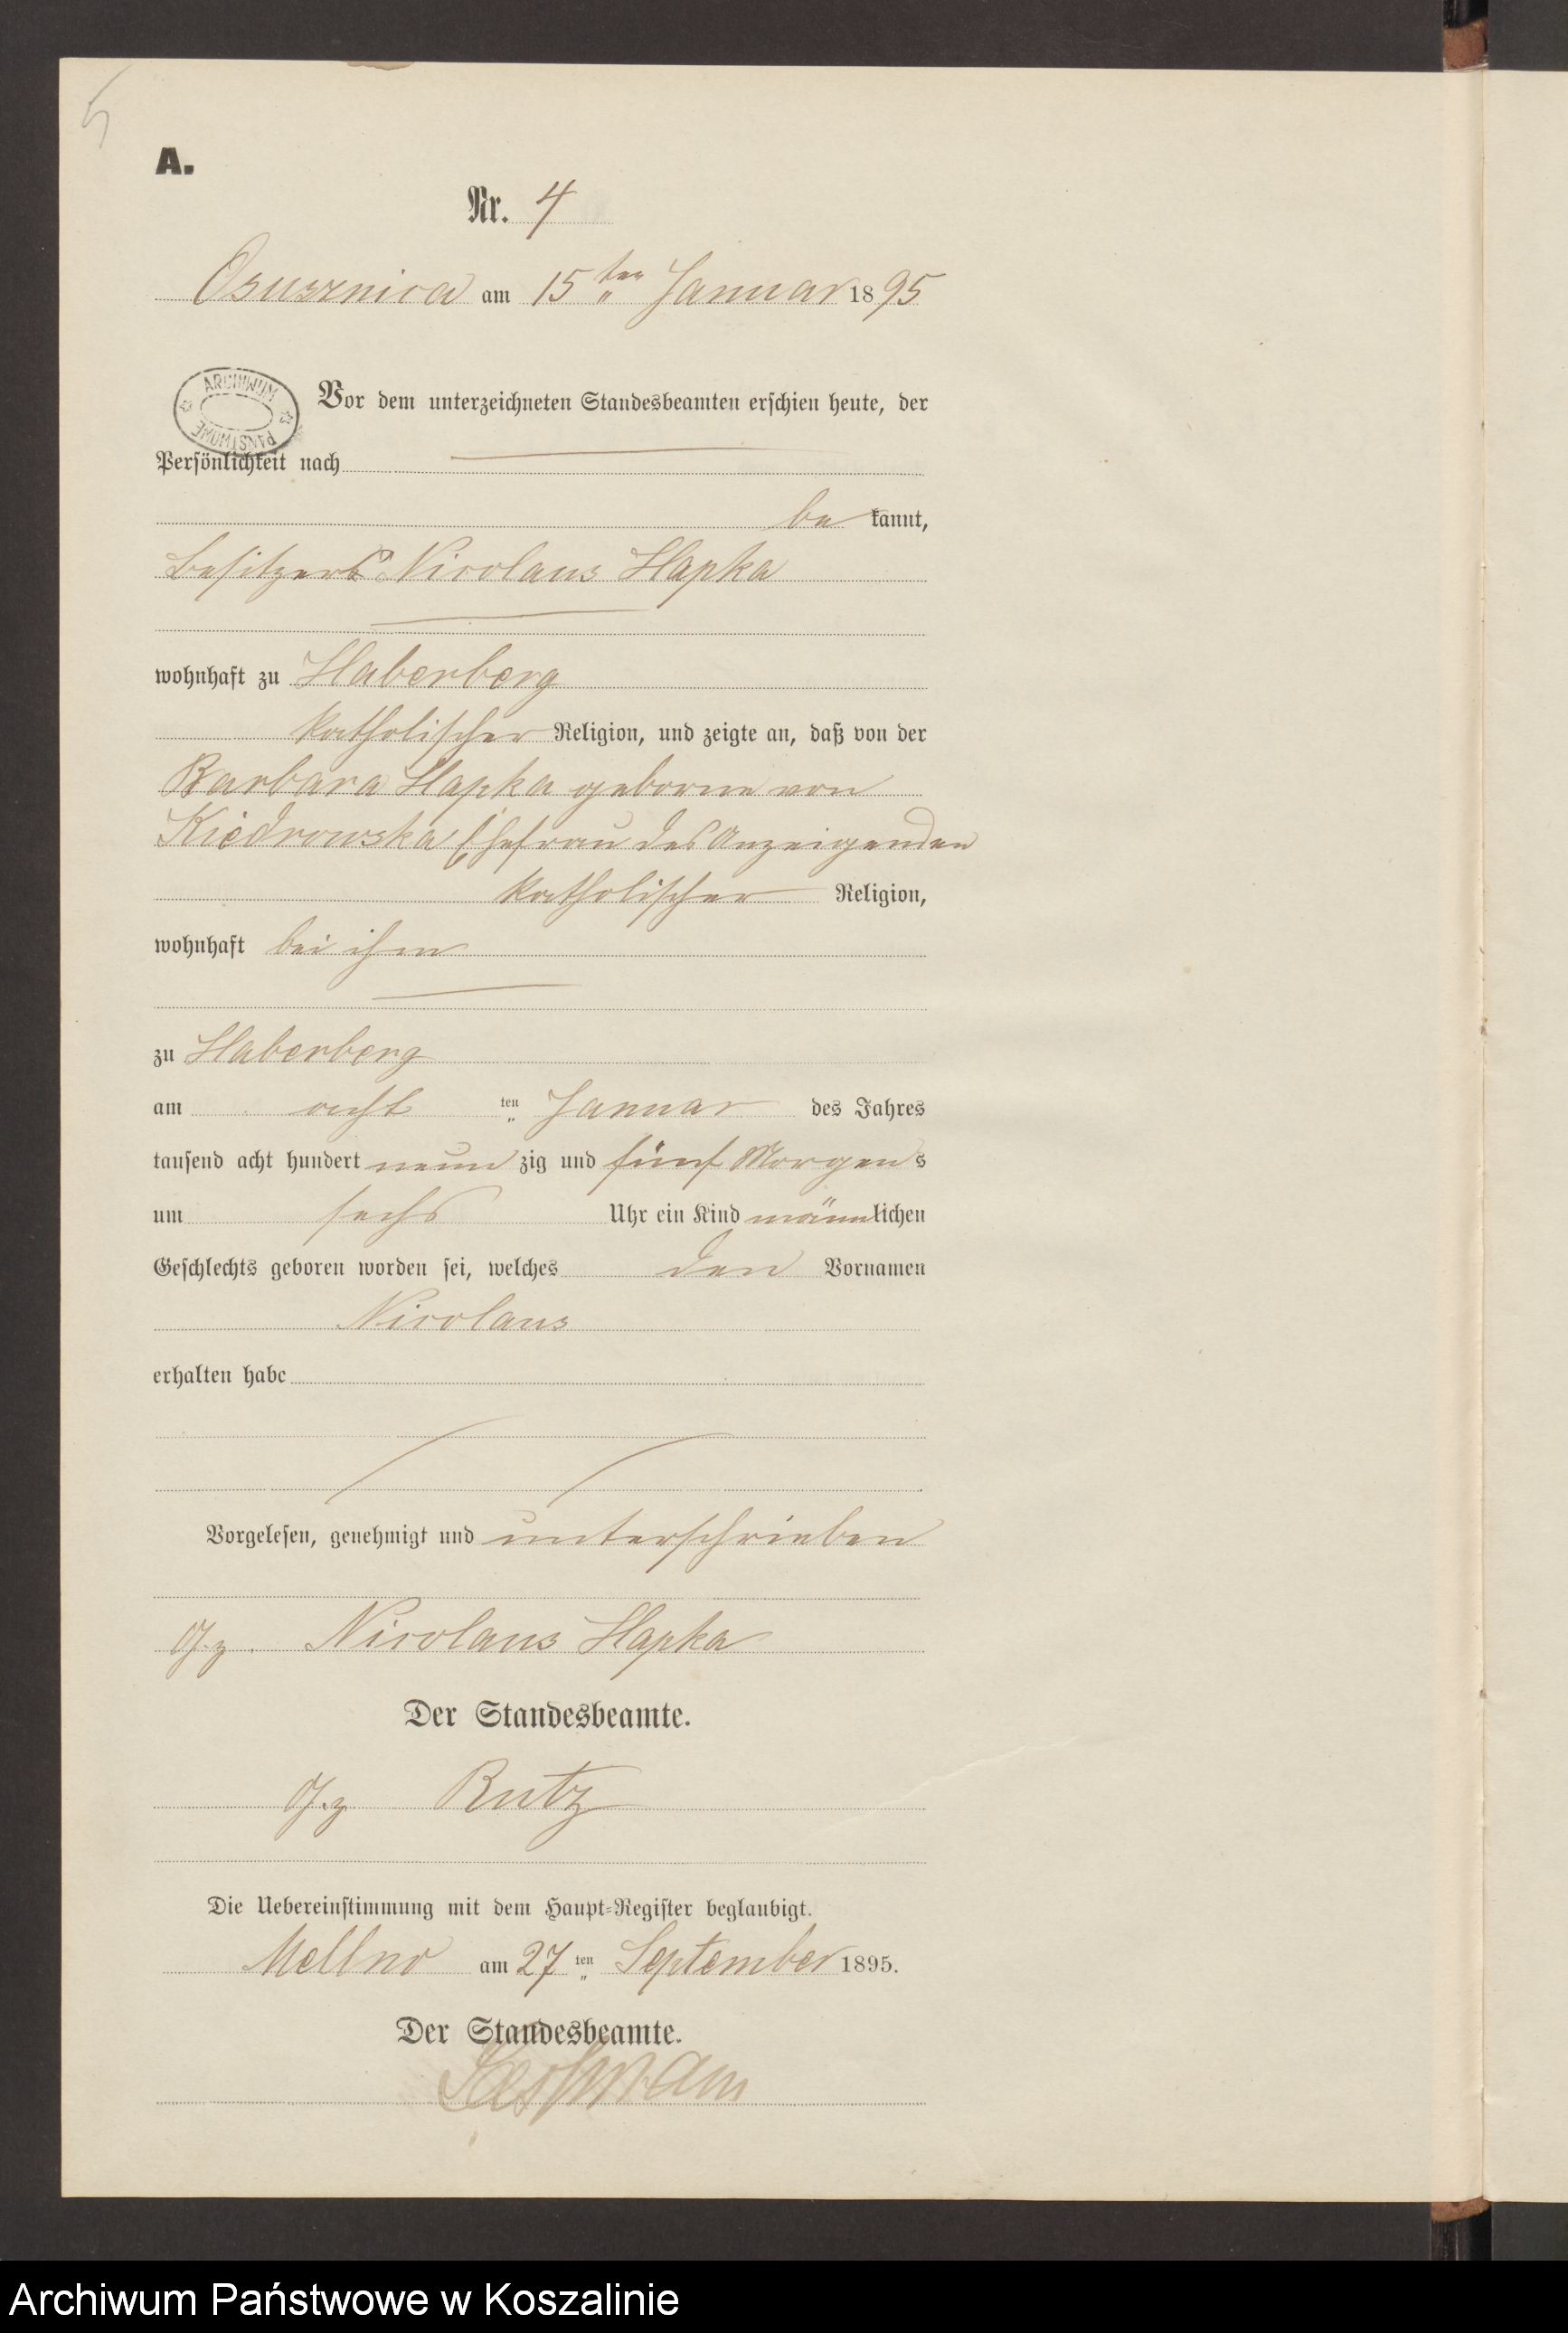 5
A.
Nr. 4
Osusznica am 15ten Januar 1895
ARCHIWUM PAŃSTWOWE
Vor dem unterzeichneten Standesbeamten erschien heute, der
Persönlichkeit nach
be kannt,
Besitzer Nicolaus Hapka
wohnhaft zu Haberberg
katholischer Religion, und zeigte an, daß von der
Barbara Hapka geborne von
Kiedrowska Ehefrau des Anzeigenden
katholischer Religion,
wohnhaft bei ihm
zu Haberberg
am acht ten Januar des Jahres
tausend acht hundert neun zig und fünf Morgens
um sechs Uhr ein Kind männlichen
Geschlechts geboren worden sei, welches den Vornamen
Nicolaus
erhalten habe
Vorgelesen, genehmigt und unterschrieben
gz. Nicolaus Hapka
Der Standesbeamte.
gz Rutz
Die Uebereinstimmung mit dem Haupt-Register beglaubigt.
Mellno am 27ten September 1895.
Der Standesbeamte.
Archiwum Państwowe w Koszalinie